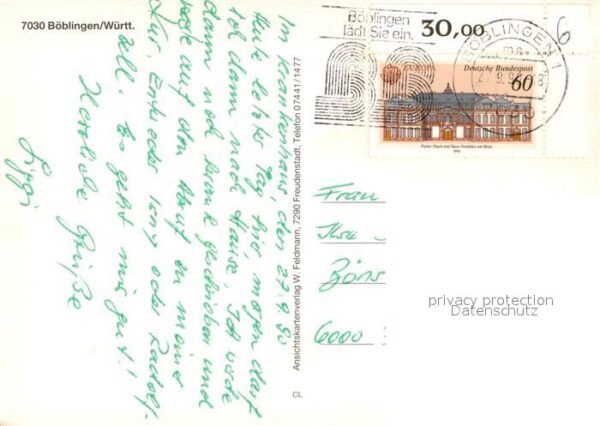 7030 Böblingen/Württ.
Im Krankenhaus, den 27.9.90
Heute letzter Tag hier morgen darf
ich dann nach Hause. Ich werde
dann noch krank geschrieben und
auf den
Kur. Entweder Isny oder Radolf-
zell. Es geht mir gut!
Herzliche Grüße
Siggi
Ansichtskartenverlag W. Feldmann, 7290 Freudenstadt, Telefon 07441/1477
CL
Böblingen
lädt Sie ein.
30,00
6
BÖBLINGEN 1
EUROPA Deutsche Bundespost
60
Palais Thurn und Taxis Frankfurt am Main
1990
Frau
Ilse
6000
privacy protection
Datenschutz